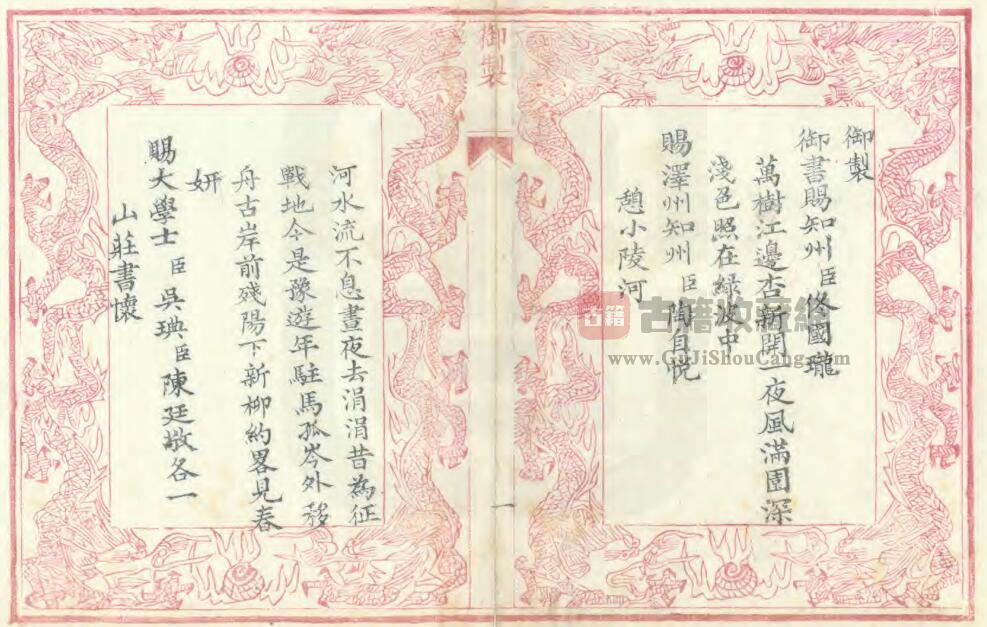 御製
御書賜知州臣佟國瓏
萬樹江邊杏新開一夜風滿園深
淺色照在緑波中
賜澤州知州臣陶自悦
憩小陵河
御製
一
河水流不息晝夜去涓涓昔為征
戰地今是豫遊年駐馬孤岑外移
舟古岸前殘陽下新柳約畧見春
妍
賜大學士臣吳琠臣陳廷敬各一
山莊書懷
古籍
古籍收藏網
www.GuJiShouCang.com